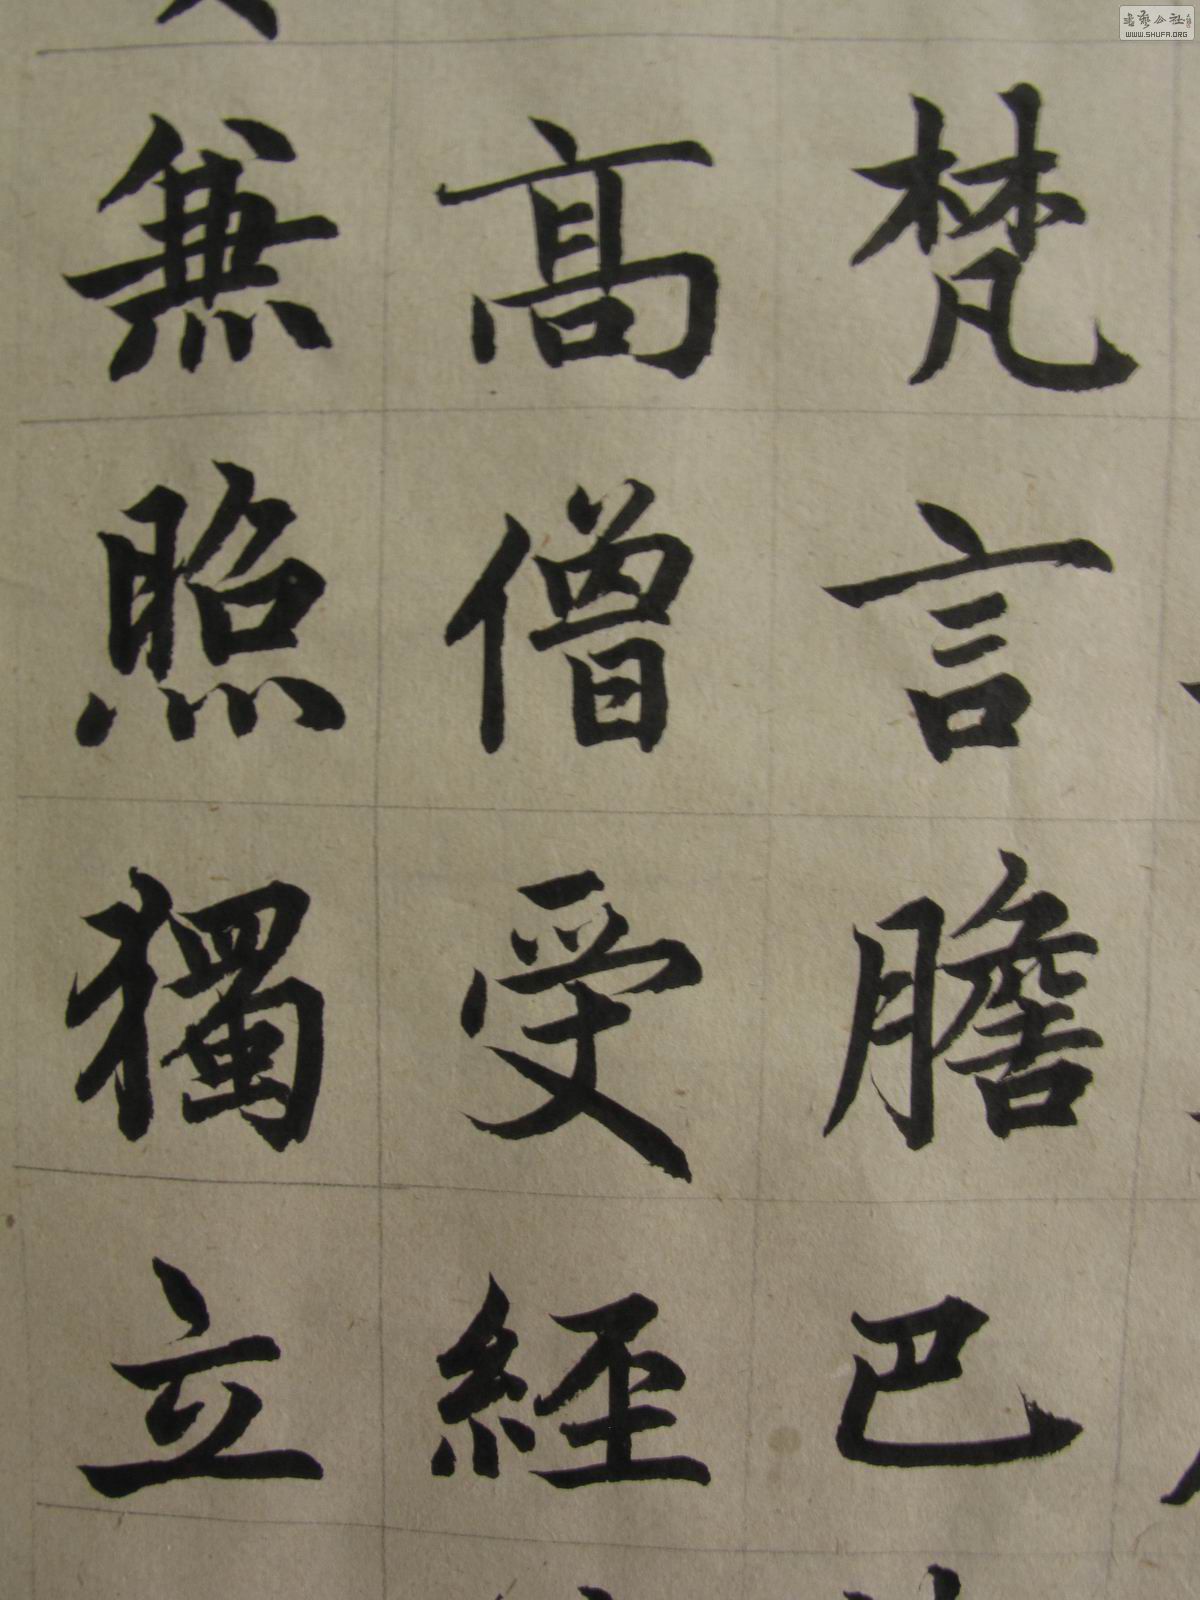 梵言膽巴
高僧受經
兼照獨立
書藝公社
WWW.SHUFA.ORG